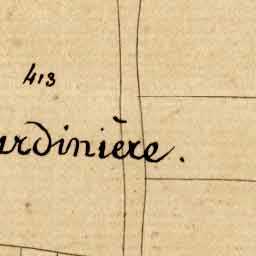 413
urdinière.